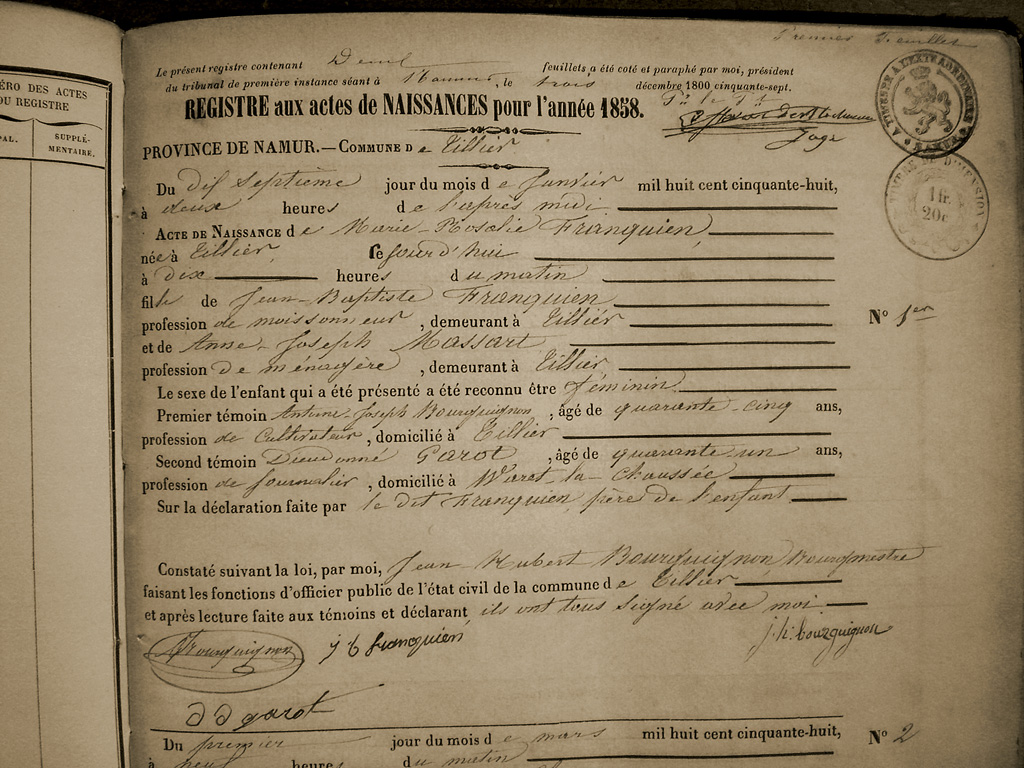 Premier Feuillet
Le présent registre contenant feuillets a été coté et paraphé par moi, président
du tribunal de première instance séant à Namur, le trois décembre 1800 cinquante-sept.
REGISTRE aux actes de NAISSANCES pour l'année 1858.
Juge
RO DES ACTES
DU REGISTRE
PAL.
SUPPLÉ-
MENTAIRE.
1 fr.
20c
PROVINCE DE NAMUR.—COMMUNE De Tillier
Du dif septième jour du mois de Janvier mil huit cent cinquante-huit,
à deux heures de l'après midi
ACTE DE NAISSANCE de Marie-Rosalie Franquien,
née à Tillier, ce jourd'hui
à dix heures du matin
fille de Jean-Baptiste Franquien
profession de moissonneur, demeurant à Tillier
et de Anne-Joseph Massart
profession de ménagère, demeurant à Tillier,
Le sexe de l'enfant qui a été présenté a été reconnu être féminin
Premier témoin Antoine-Joseph Bourguignon, âgé de quarante-cinq ans,
profession de Cultivateur, domicilié à Tillier
Second témoin Dieudonné Garot, âgé de quarante-un ans,
profession de Journalier, domicilié à Waret-la-Chaussée
Sur la déclaration faite par le dit Franquien, père de l'enfant
Nº 1er
Constaté suivant la loi, par moi, Jean-Hubert Bourguignon, Bourgmestre
faisant les fonctions d'officier public de l'état civil de la commune de Tillier
et après lecture faite aux témoins et déclarant ils ont tous signé avec moi.
Bourguignon j b franquien j. h. bourguignon
d d garot
Du premier jour du mois de mars mil huit cent cinquante-huit,
à neuf heures du matin
Nº 2